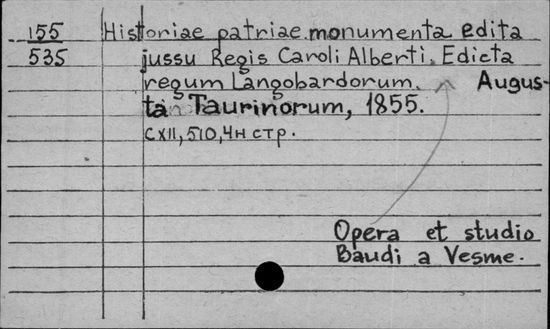 155 Historiae patriae monumenta edita
535 jussu Regis Caroli Alberti. Edicta
regum Langobardorum. Augus-
ta Taurinorum, 1855.
CXII, 510, 4н стр.
Opera et studio
Baudi a Vesme.